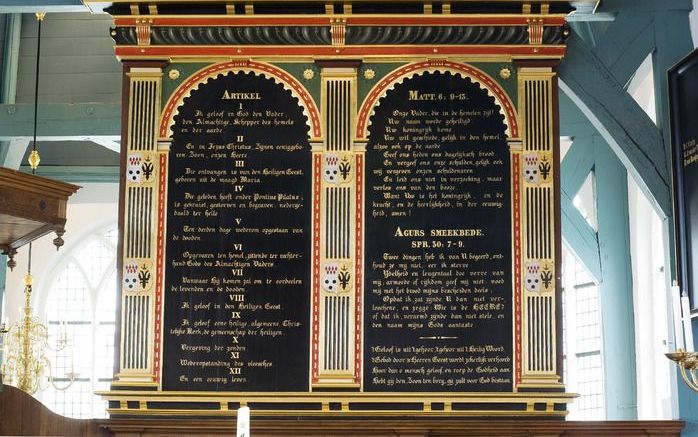 ARTIKEL
I
Ik geloof in God den Vader,
den Almachtige, Schepper des hemels
en der aarde.
II
En in Jezus Christus, Zijnen eeniggebo-
ren Zoon, onzen Heere
III
Die ontvangen is van den Heiligen Geest,
geboren uit de maagd Maria.
IV
Die geleden heeft onder Pontius Pilatus,
is gekruist, gestorven en begraven, nederge-
daald ter helle
V
Ten derden dage wederom opgestaan van
de dooden.
VI
Opgevaren ten hemel, zittende ter rechter-
hand Gods des Almachtigen Vaders.
VII
Vanwaar Hij komen zal om te oordeelen
de levenden en de dooden.
VIII
Ik geloof in den Heiligen Geest.
IX
Ik geloof eene heilige, algemeene, Chris-
telijke Kerk, de gemeenschap der heiligen.
X
Vergeving der zonden
XI
Wederopstanding des vleesches
XII
En een eeuwig leven.
MATT. 6: 9-13.
Onze Vader, die in de hemelen zijt!
Uw naam worde geheiligd.
Uw koninkrijk kome
Uw wil geschiede, gelijk in den hemel,
alzoo ook op de aarde
Geef ons heden ons dagelijksch brood.
En vergeef ons onze schulden, gelijk ook
wij vergeven onzen schuldenaren
En leid ons niet in verzoeking, maar
verlos ons van den booze.
Want Uw is het koningrijk, en de
kracht, en de heerlijkheid, in der eeuwig-
heid, amen!
AGURS SMEEKBEDE.
SPR. 30: 7-9.
Twee dingen heb ik van U begeerd, ont-
houd ze mij niet, eer ik sterve
IJdelheid en leugentaal doe verre van
mij, armoede of rijkdom geef mij niet: voed
mij met het brood mijns bescheiden deels.
Opdat ik zat zijnde, U dan niet ver-
loochene, en zegge: Wie is de HEERE?
of dat ik, verarmd zijnde dan niet stele, en
den naam mijns Gods aantaste.
't Geloof is uit 't gehoor, 't gehoor uit 't Heilig Woord
't Gebod door 's Heeren Geest wordt zekerlijk verhoord
Hoor dus o mensch geloof, en roep de Godheid aan.
Hebt gij den Zoon ten borg, gij zult voor God bestaan.